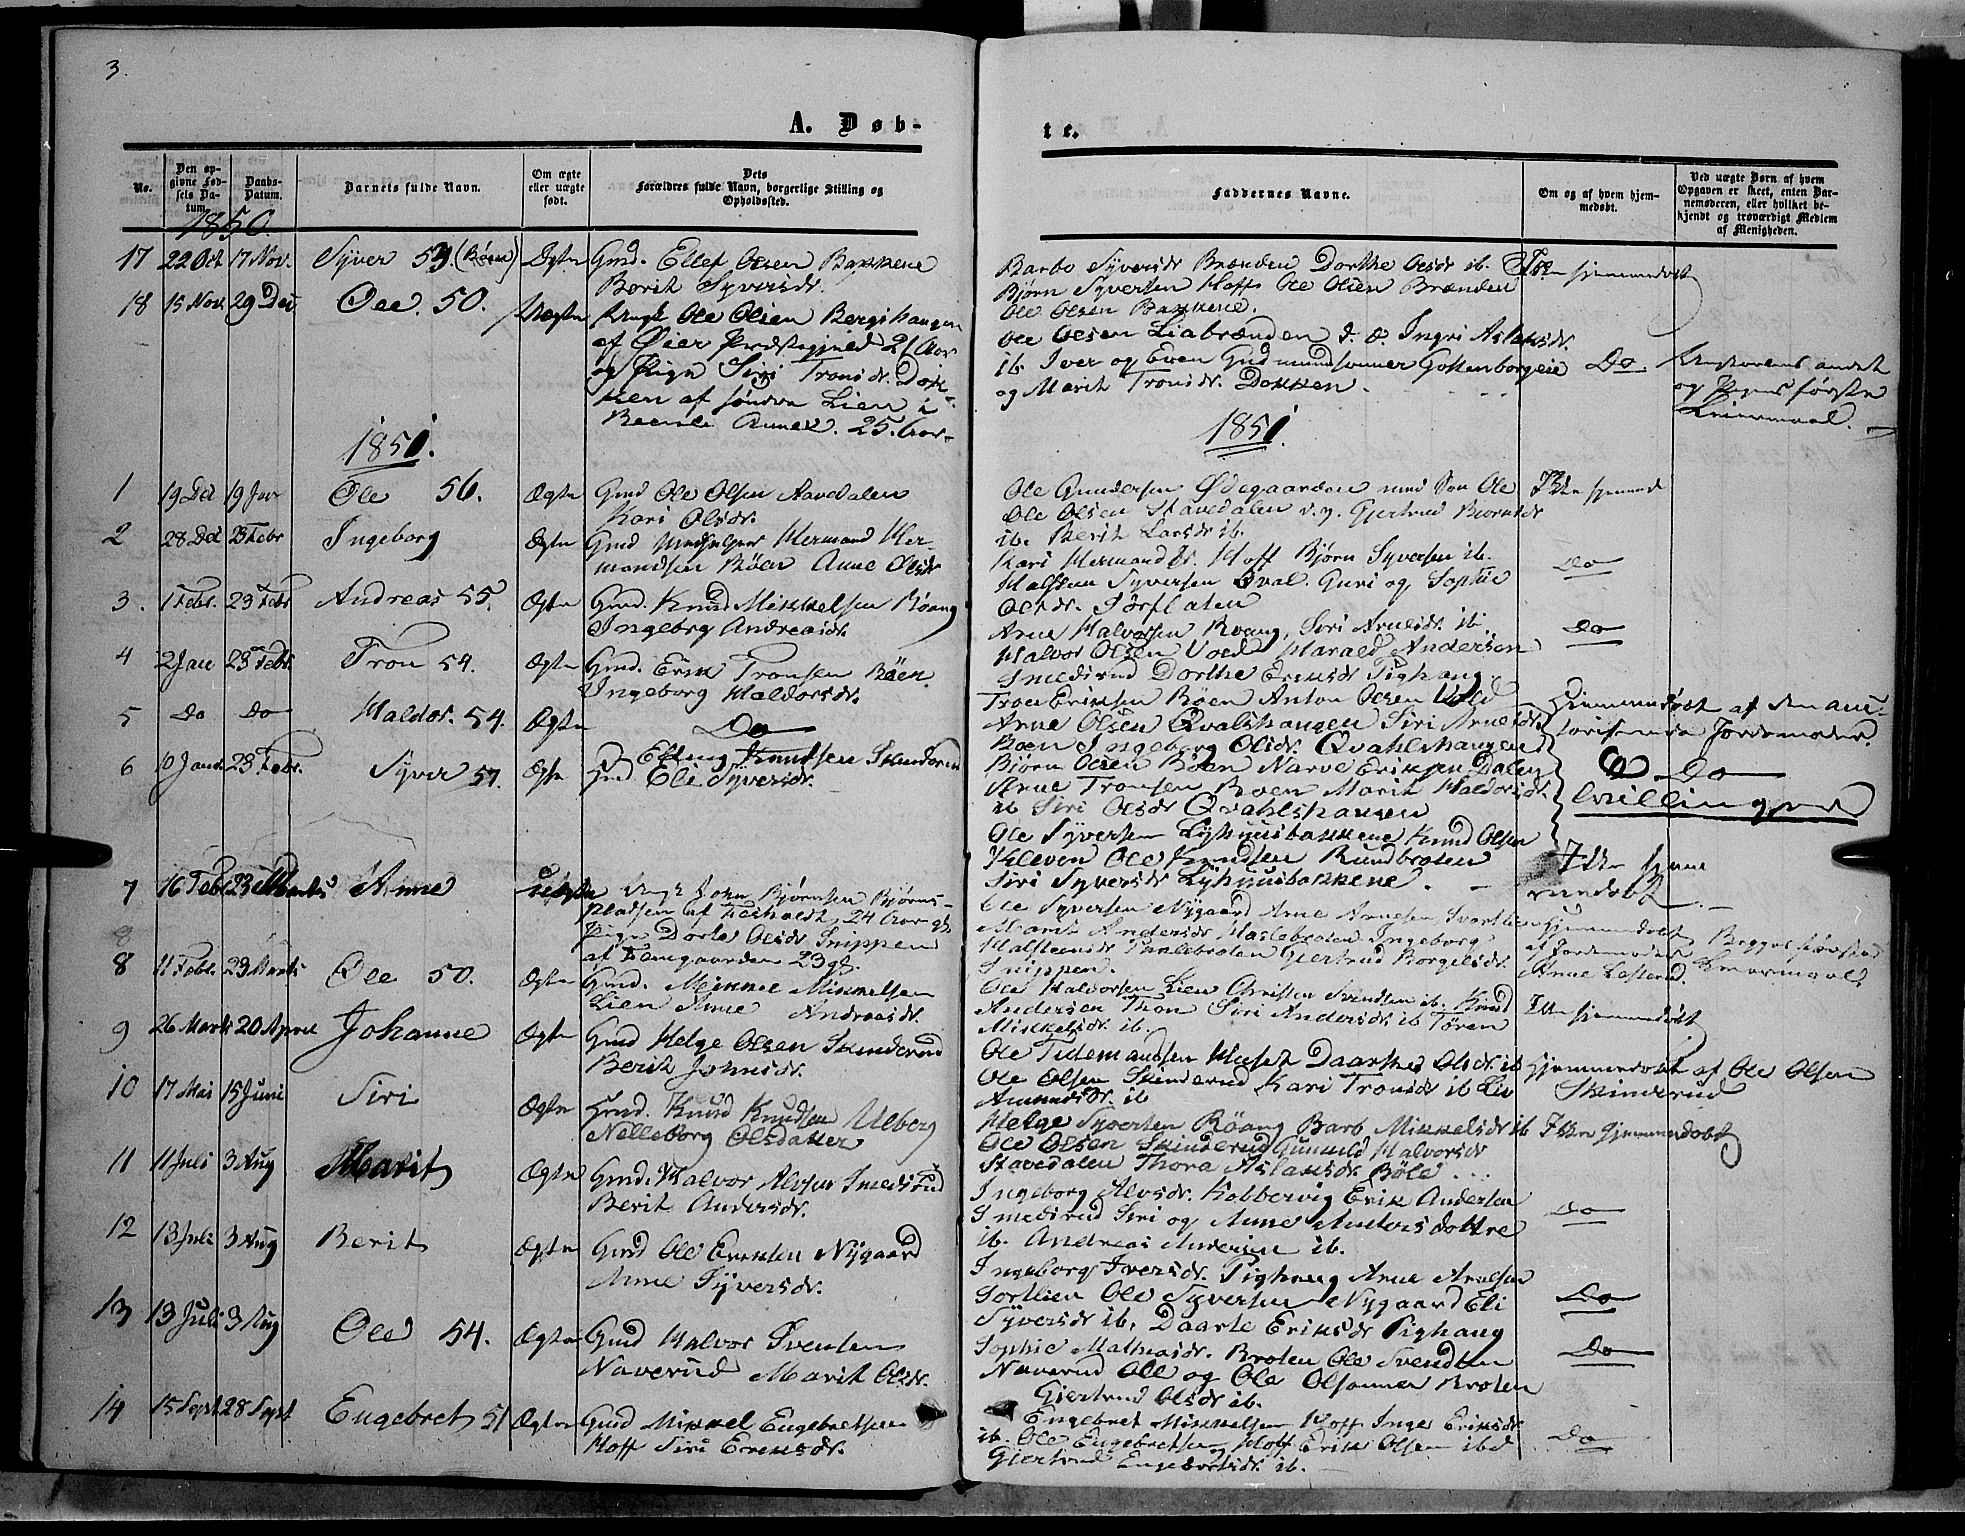 3.
A. Døb-
No.
Den op-
givne Fød-
sels Da-
tum.
Daabs-
Datum.
Barnets fulde Navn.
Om ægte
eller uægte
født.
Dets
Forældres fulde Navn, borgerlige Stilling og
Opholdssted.
1850.
17 22 Oct 17 Nov. Syver 59. Ægte Gmd. Ellef Olsen Bakkene
Berit Syversdr.
18 15 Nov 29 Dec Ole. 50. Uægte Ungk Ole Olsen Bergshaugen
af Øier Præstegjeld 21 Aar
og Pige Siri Tronsdr. Dok-
ken af søndre Lien i
Annex. 25. Aar
1851.
1 19 Dec 19 Jan Ole 56. Ægte Gmd Ole Olsen Aavedalen
Kari Olsdr.
2 28 Dec 23 Febr Ingeborg Ægte Gmd Hermand Her-
mandsen Røen Anne Olsdr
3. 1 Febr. 23 Febr Andreas 55. Ægte Gmd. Knud Mikkelsen Røang
Ingebrg Andreasdr.
4 2 Jan 23 Febr. Tron 54. Ægte Gmd. Erik Tronsen Røen
Ingeborg Haldorsdr.
5 Do Do Haldor. 54. Ægte Do
6 10 Janr 23 Febr. Syver 57. Ægte Gmd Elling Knudsen Skinderud
Eli Syversdr.
7 16 Febr 23 Marts Anne Uægte Ungk John Bjørnsen Bjørns-
pladsen af 24 Aar gl.
Pige Dorte Olsdr Snippen
af 23 gl.
8 11 Febr. 23 Marts Ole 50. Ægte Gmd. Mikkel Mikkelsen
Lien Anne Andreasdr.
9 26 Marts 20 April Johanne Ægte Gmd Helge Olsen Skinderud
Berit Johnsdr.
10 17 Mai 15 Juni Siri Ægte Gmd. Knud Knudsen Ulberg
Nelleborg Olsdatter
11 11 Juli 3 Aug Marit Ægte Gmd. Halvor Alvsen Smedsrud
Berit Andersdr.
12 13 Juli 3 Aug Berit Ægte Gmd Ole Eriksen Nygaard
Anne Syversdr.
13 13 Juli 3 Aug Ole 54. Ægte Gmd Halvor Svensen
Naverud Marit Olsdr.
14 15 Sept 28 Sept. Engebret 51 Ægte Gmd Mikkel Engebretsen
Hoff Siri Eriksdr.
te.
Faddernes Navne.
Om og af hvem hjem-
medøbt.
Ved uægte Børn af hvem
Opgaven er skeet, enten Bar-
nemoderen, eller hvilket be-
kjendt og troværdigt Medlem
af Menigheden.
Barbo Syversdr Brænden Dorthe Olsdr ib. Ikke hjemmedøbt
Bjørn Syversen Hoff Ole Olsen Brænden
Ole Olsen Bakkene.
Ole Olsen Liabrænden Ingri Aslaksdr.
ib. Iver og Even Gudmundsønner Do
og Marit Tronsdr. Dokken. og Pigens første
Leiermaal.
1851.
Ole Gundersen Ødegaarden med Søn Ole
Ole Olsen Stavedalen Gjertrud Bjørnsdr
ib. Berit Larsdr ib.
Kari Hermandsdr. Hoff Bjørn Syversen ib. Do
Halsten Syversen Qval Guri og Sophie
Olsdr. Sørflaten
Arne Halvorsen Røang, Siri Arnesdr. ib. Do
Halvor Olsen Harald Andersen
Smedsrud Dorthe Eriksdr Pighaug
Tron Eriksen Røen Anton Olsen Hjemmedøbt af den auc-
Arne Olsen Qvalshaugen Siri Arnesdr. toriserede Jordemoder.
Røen Ingeborg Olsdr. Qvahlshaugen
Bjørn Olsen Røen Narve Eriksen Dalen Do
Arne Tronsen Roen Marit Haldorsdr. Tvillinger
ib Siri Olsdr Qvahlshaugen
Ole Syversen Lyhuusbakkene Knud Olsen
Kleven Ole Knudsen Rundbroten Ikke hjem
Siri Syversdr Lyhuusbakkene. medøbt.
Ole Syversen Nygaard Arne Arnesen Sortlien Hjemmedøbt
Marit Andersdr Haslebroten Ingeborg af Jordemoder Begges første
Halstensdr Haslebroten Gjertrud Borgelsdr. Leiermaal
Snippen.
Ole Halvorsen Lien Christen Svendsen ib. Knud Ikke hjemmedøbt
Andersen Thon Siri Andersdr. ib Tøren
Mikkelsdr. ib.
Ole Tidemandsen Huset Daarthe Olsdr. ib Hjemmedøbt af Ole Olsen
Ole Olsen Skinderud Kari Tronsdr ib Liv Skinderud
Amundsdr. ib
Helge Syversen Røang Barb Mikkelsdr ib Ikke hjemmedøbt
Ole Olsen Skinderud Gunnild Halvorsdr
Stavedalen Thora Aslaksdr. Bøle
Ingeborg Alvsdr. Kobbervig Erik Andersen Do
Smedsrud Siri og Anne Andersdottre
ib. Andreas Andersen ib.
Ingeborg Iversdr. Pighaug Arne Arnesen
Sortlien Ole Syversen Nygaard Eli Do
Syversdr ib, Daarte Eriksdr Pighaug
Sophie Mathiasdr. Broten Ole Svendsen Do
Naverud Ole og Ole Olsønner Broten
Gjertrud Olsdr ib.
Engebret Mikkelsen Hoff Inge Eriksdr.
ib. Ole Engebretsen Hoff Erik Olsen ib Do
Gjertrud Engebretsdr. ib.